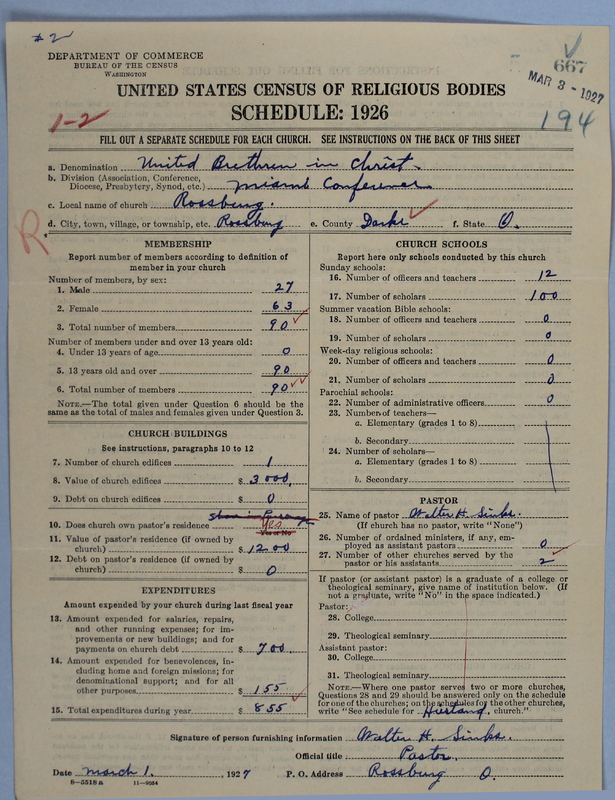 #2
DEPARTMENT OF COMMERCE
BUREAU OF THE CENSUS
WASHINGTON
667
MAR 3 - 1927
UNITED STATES CENSUS OF RELIGIOUS BODIES
SCHEDULE: 1926
1-2
194
FILL OUT A SEPARATE SCHEDULE FOR EACH CHURCH. SEE INSTRUCTIONS ON THE BACK OF THIS SHEET
a. Denomination United Brethren in Christ.
b. Division (Association, Conference, Diocese, Presbytery, Synod, etc.) Miami Conference
c. Local name of church Rossburg.
d. City, town, village, or township, etc. Rossburg e. County Darke f. State O.
R
MEMBERSHIP
Report number of members according to definition of member in your church
Number of members, by sex:
1. Male 27
2. Female 63
3. Total number of members 90
Number of members under and over 13 years old:
4. Under 13 years of age 0
5. 13 years old and over 90
6. Total number of members 90
NOTE.—The total given under Question 6 should be the same as the total of males and females given under Question 3.
CHURCH BUILDINGS
See instructions, paragraphs 10 to 12
7. Number of church edifices 1
8. Value of church edifices $ 3000.
9. Debt on church edifices $ 0
10. Does church own pastor's residence Yes
Yes or No
11. Value of pastor's residence (if owned by church) $ 1200
12. Debt on pastor's residence (if owned by church) $ 0
EXPENDITURES
Amount expended by your church during last fiscal year
13. Amount expended for salaries, repairs, and other running expenses; for improvements or new buildings; and for payments on church debt $ 700.
14. Amount expended for benevolences, including home and foreign missions; for denominational support; and for all other purposes $ 155
15. Total expenditures during year $ 855
CHURCH SCHOOLS
Report here only schools conducted by this church
Sunday schools:
16. Number of officers and teachers 12
17. Number of scholars 100
Summer vacation Bible schools:
18. Number of officers and teachers 0
19. Number of scholars 0
Week-day religious schools:
20. Number of officers and teachers 0
21. Number of scholars 0
Parochial schools:
22. Number of administrative officers 0
23. Number of teachers—
a. Elementary (grades 1 to 8)
b. Secondary
24. Number of scholars—
a. Elementary (grades 1 to 8)
b. Secondary
PASTOR
25. Name of pastor Walter H. Sinks.
(If church has no pastor, write "None")
26. Number of ordained ministers, if any, employed as assistant pastors 0
27. Number of other churches served by the pastor or his assistants 2
If pastor (or assistant pastor) is a graduate of a college or theological seminary, give name of institution below. (If not a graduate, write "No" in the space indicated.)
Pastor:
28. College
29. Theological seminary
Assistant pastor:
30. College
31. Theological seminary
NOTE.—Where one pastor serves two or more churches, Questions 28 and 29 should be answered only on the schedule for one of the churches; on the schedules for the other churches, write "See schedule for church."
Signature of person furnishing information Walter H. Sinks.
Official title Pastor.
Date March 1. , 1927 P. O. Address Rossburg O.
8—5518a 11—9084